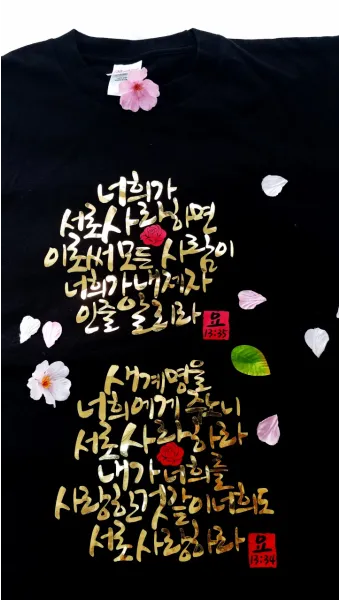 너희가
서로 사랑하면
이로써 모든 사람이
너희가 내 제자
인줄 알리라
요
13:35
새계명을
너희에게 주노니
서로 사랑하라
내가 너희를
사랑한것같이 너희도
서로 사랑하라
요
13:34